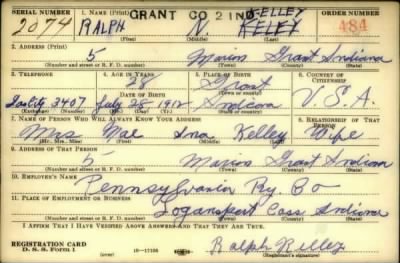 SERIAL NUMBER 1. NAME (Print) GRANT CO 2 IND KELLEY ORDER NUMBER
2074 RALPH N. KELEY 484
(First) (Middle) (Last)
2. ADDRESS (Print)
5 Marion Grant Indiana
(Number and street or R. F. D. number) (Town) (County) (State)
3. TELEPHONE 4. AGE IN YEARS 5. PLACE OF BIRTH 6. COUNTRY OF CITIZENSHIP
28 Grant
DATE OF BIRTH
3407 July 28 1912 Indiana U.S.A.
(Exchange) (Number) (Mo.) (Day) (Yr.) (State or country)
7. NAME OF PERSON WHO WILL ALWAYS KNOW YOUR ADDRESS 8. RELATIONSHIP OF THAT PERSON
Mrs Mae Ina Kelley Wife
(Mr., Mrs., Miss) (First) (Middle) (Last)
9. ADDRESS OF THAT PERSON
5 Marion Grant Indiana
(Number and street or R. F. D. number) (Town) (County) (State)
10. EMPLOYER'S NAME
Pennsylvania Ry. Co
11. PLACE OF EMPLOYMENT OR BUSINESS
Logansport Cass Indiana
(Number and street or R. F. D. number) (Town) (County) (State)
I AFFIRM THAT I HAVE VERIFIED ABOVE ANSWERS AND THAT THEY ARE TRUE.
REGISTRATION CARD
D. S. S. Form 1 16—17105 Ralph Kelley
(Registrant's signature)